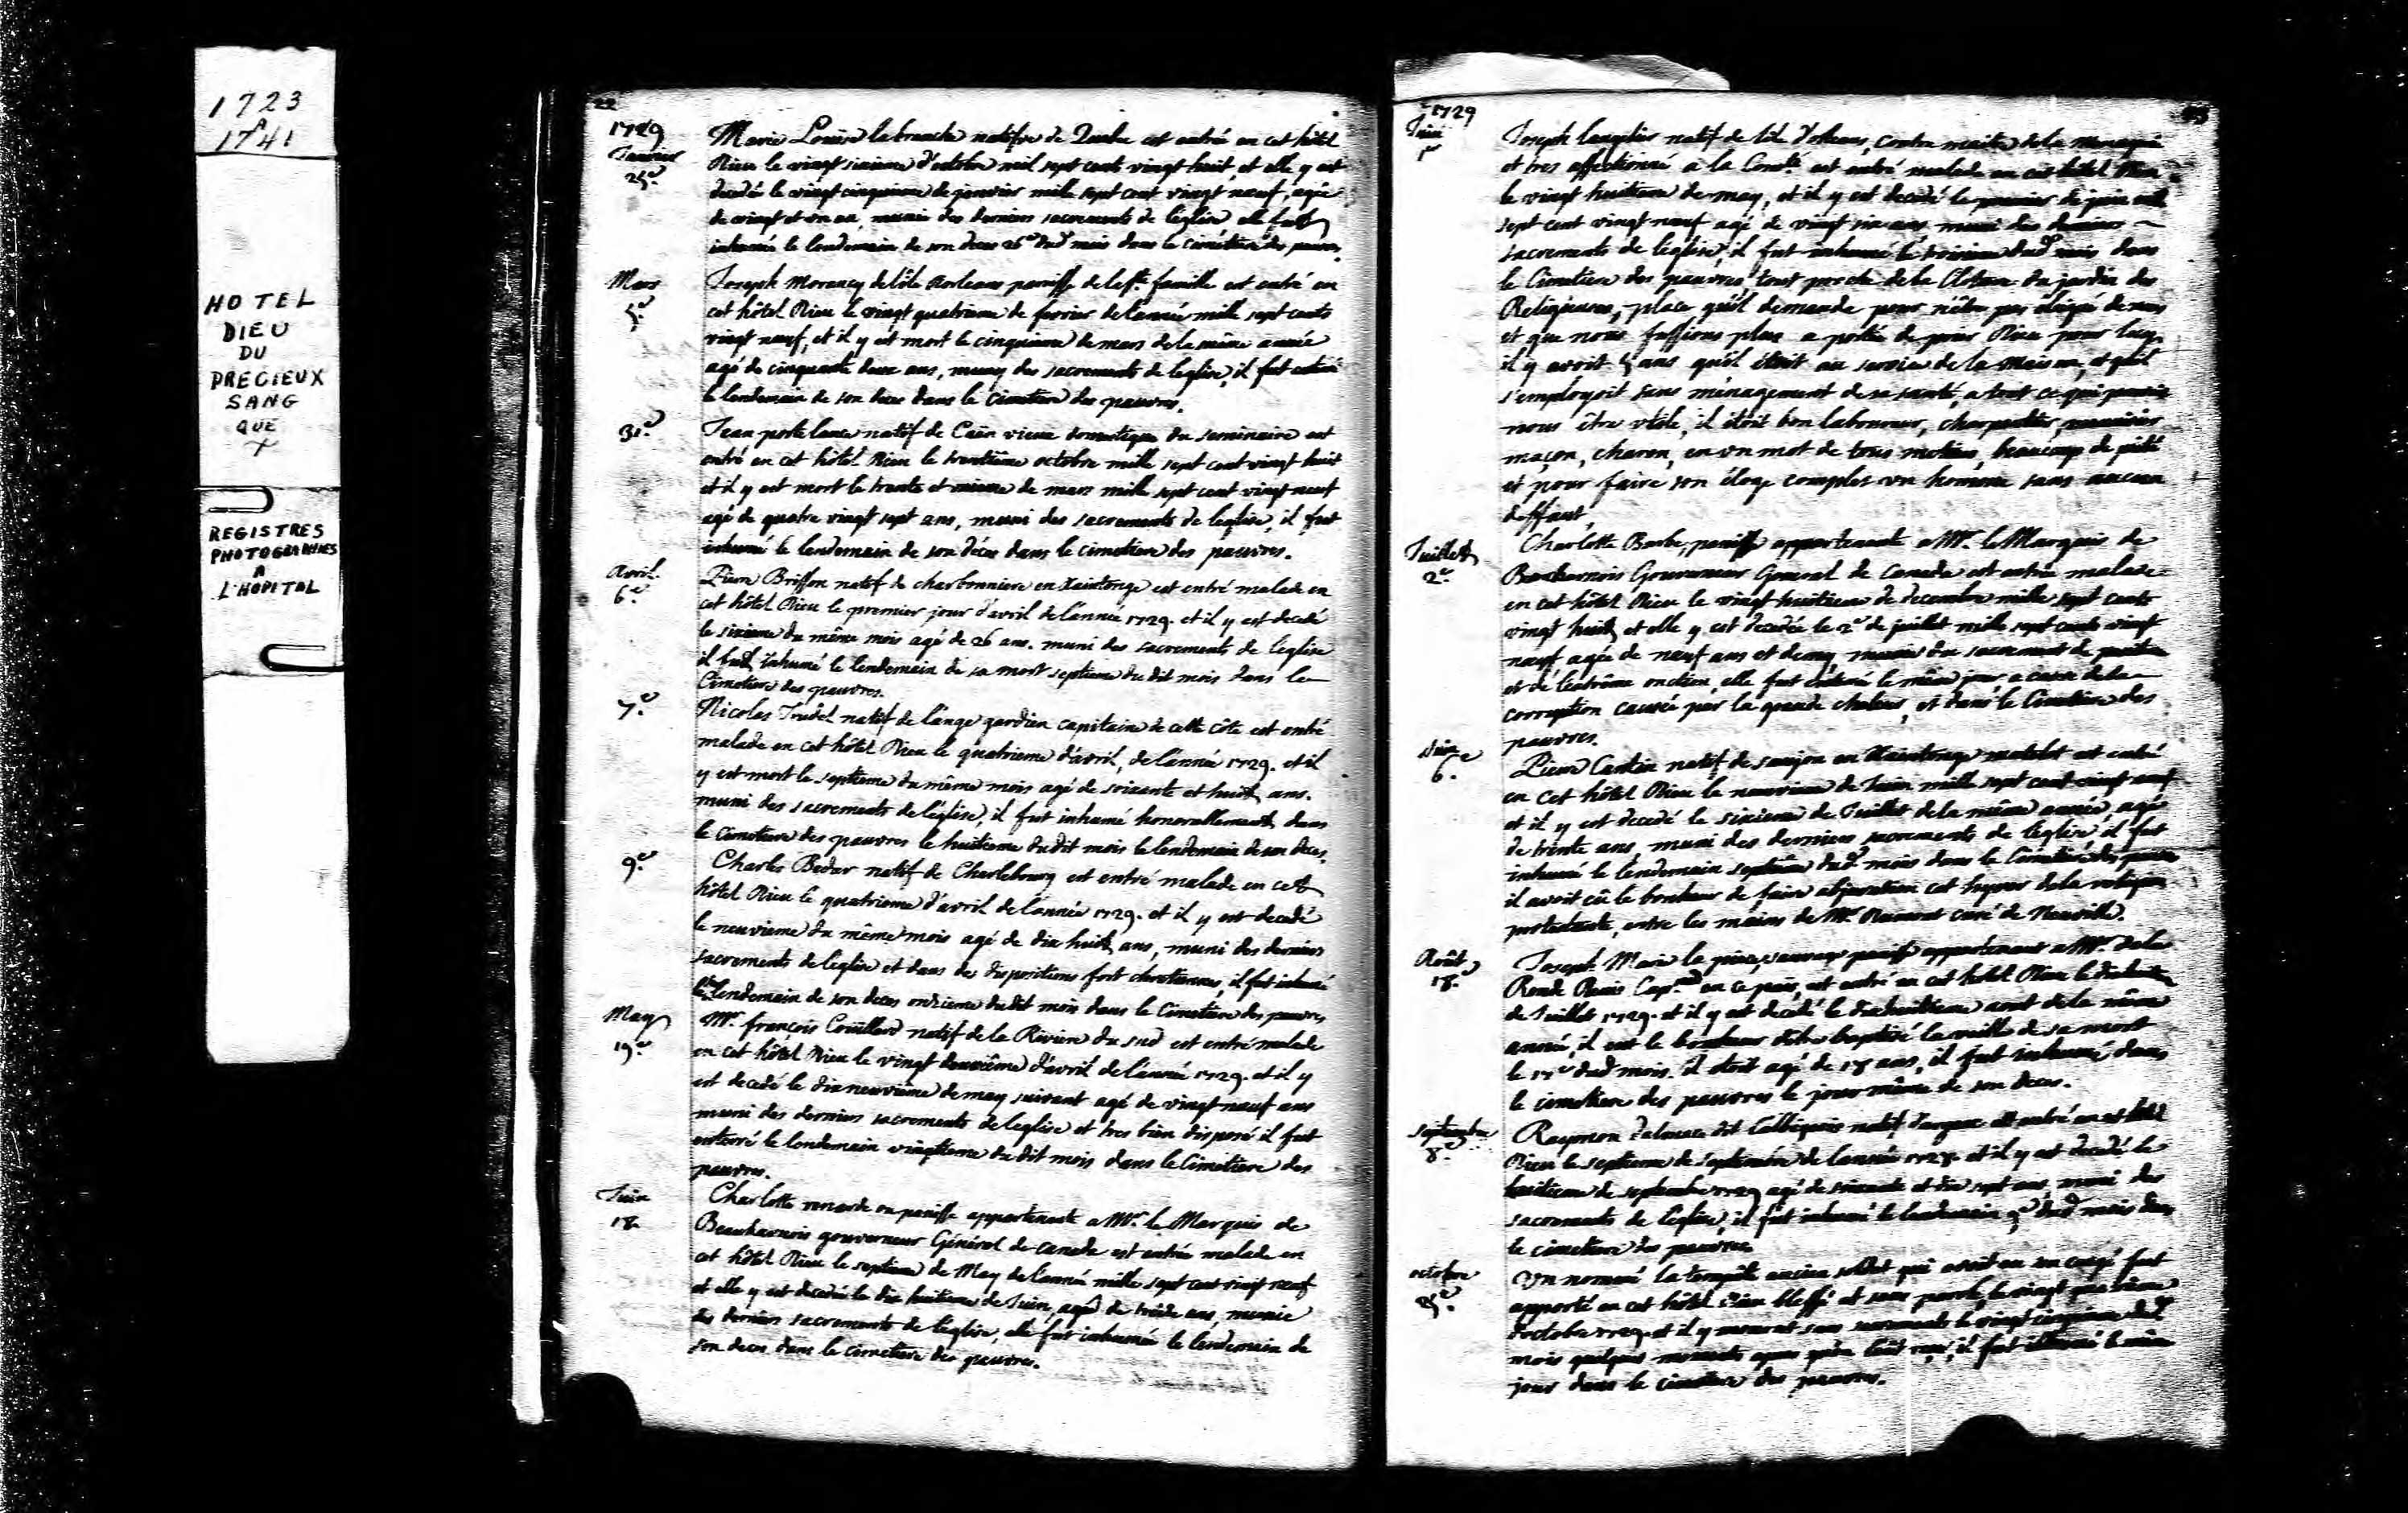 1723
A
1741
HOTEL
DIEU
DU
PRECIEUX
SANG
QUE
REGISTRES
PHOTOGRAPHIES
A
L'HOPITAL
22
1729
Janvier
25e
Marie Louise la branche natifve de Quebec est entré en cet hôtel
Dieu le vingt sixieme d'octobre mil sept cents vingt huit, et elle y est
decedée le vingt cinquieme de janvier mille sept cent vingt neuf, agée
de vingt et un an, munie des derniers sacrements de l'église elle fut
inhumée le lendemain de son deces 26e dud mois dans le cimétiere des pauvres.
Mars
5e
Joseph Morency de l'ile d'orleans paroisse de la ste famille est entré en
cet hôtel Dieu le vingt quatrieme de fevrier de l'année mille sept cents
vingt neuf, et il y est mort le cinquieme de mars de la même année
agé de cinquante deux ans, muny des sacrements de l'eglise, il fut
le lendemain de son deces dans le cimetiere des pauvres.
31e
Jean porte lance natif de Caën vieux domestique du seminaire est
entré en cet hôtel Dieu le trentième octobre mille sept cent vingt huit
et il y est mort le trente et unieme de mars mille sept cent vingt neuf
agé de quatre vingt sept ans, muni des sacrements de l'eglise, il fut
inhumé le lendemain de son déces dans le cimetiere des pauvres.
Avril
6e
Pierre Brisson natif de charbonniere en Xaintonge est entré malade en
cet hôtel Dieu le premier jour d'avril de l'année 1729. et il y est decedé
le sixieme du même mois agé de 26 ans. muni des sacrements de l'église
il fut Inhumé le lendemain de sa mort septieme du dit mois dans le
Cimetiere des pauvres.
7e
Nicolas Trudel natif de l'ange gardien capitaine de cette côte est entré
malade en cet hôtel Dieu le quatrieme d'avril, de l'année 1729. et il
y est mort le septieme du même mois agé de soixante et huit ans.
muni des sacrements de l'église, il fut inhumé honorablement dans
le cimetiere des pauvres le huitieme du dit mois le lendemain de son deces.
9e
Charles Bedar natif de Charlebourg est entré malade en cet
hôtel Dieu le quatrieme d'avril de l'année 1729. et il y est decedé
le neuvieme du même mois agé de dix huit ans, muni des derniers
sacrements de l'eglise et dans des dispositions fort chretiennes, il fut inhumé
le lendemain de son deces onzieme du dit mois dans le Cimetiere des pauvres
May
19e
Mr. françois Coüillard natif de la Riviere du sud est entré malade
en cet hôtel Dieu le vingt deuxième d'avril de l'année 1729. et il y
est decedé le dix neuvième de may suivant agé de vingt neuf ans
muni des derniers sacrements de l'eglise et tres bien disposé il fut
enterré le lendemain vingtieme du dit mois dans le Cimetiere des
pauvres.
Juin
18.
Charlotte renarde ou panisse appartenante a Mr. le Marquis de
Beauharnois gouverneur Général de Canada est entrée malade en
cet hôtel Dieu le septieme de May de l'année mille sept cent vingt neuf
et elle y est decedée le dix huitieme de Juin, agée de treize ans, munie
des derniers sacrements de l'eglise, elle fut inhumée le lendemain de
son deces dans le cimetiere des pauvres.
1729
Juin
1er
Joseph langelier natif de l'ile d'orleans, contre maitre de la menagerie
et tres affectionné a la Comté est entré malade en cet hôtel Dieu
le vingt huitieme de may, et il y est decedé le premier de juin mil
sept cent vingt neuf agé de vingt six ans muni des derniers
sacrements de l'eglise, il fut inhumé le troisieme dud mois dans
le Cimetiere des pauvres tout proche de la Cloture du jardin des
Religieuses, place qu'il demanda pour n'être pas éloigné de nous
et que nous fussions plus a portée de prier Dieu pour luy,
il y avoit ans qu'il étoit au service de la Maison, et qu'il
s'employoit sans ménagement de sa santé, a tout ce qui pouvoit
nous être utile, il étoit bon laboureur, charpentier, menuisier
maçon, charon, en un mot de tous metiers, beaucoup de piété
et pour faire son éloge complet un homme sans aucun
deffaut.
Juillet
2e
Charlotte Barbe, panisse appartenante a Mr. le Marquis de
Beauharnois Gouverneur General de Canada est entrée malade
en cet hôtel Dieu le vingt huitieme de decembre mille sept cents
vingt huit, et elle y est decedée le 2e de juillet mille sept cents vingt
neuf, agée de neuf ans et demy, munie du sacrement de
et de l'extrême onction, elle fut enterré le même jour a cause de la
corruption causée par la grande chaleur, et dans le Cimetiere des
pauvres.
6e
Pierre Cartin natif de saujon en Xaintonge matelot est entré
en cet hôtel Dieu le neuvieme de Juin mille sept cent vingt neuf
et il y est decedé le sixieme de Juillet de la même année, agé
de trente ans, muni des derniers sacrements de l'église il fut
inhumé le lendemain septième dud mois dans le Cimetiere des pauvres
il avoit eü le bonheur de faire abjuration cet hyver de la religion
protestante, entre les mains de Mr. curé de Neuville.
Août
18e
Joseph Marie la pine, sauvage panisse appartenant a Mr. de la
Ronde Denis Cap.ne en ce païs, est entré en cet hôtel Dieu le
de Juillet 1729. et il y est decedé le dixhuitieme aout de la même
année, il eut le bonheur d'etre baptisé la veille de sa mort
le 17e dud mois. il étoit agé de 18 ans, il fut inhumé dans
le cimetiere des pauvres le jour même de son deces.
septembre
8e
Raymon dit natif est entré en cet hôtel
Dieu le septieme de septembre de l'année 1728. et il y est decedé le
huitieme de septembre 1729 agé de soixante et dix sept ans, muni des
sacrements de l'eglise, il fut inhumé le lendemain 9e dud mois dans
le cimetiere des pauvres
octobre
25e
Un nommé la tempête ancien soldat qui avoit eu son congé fut
apporté en cet hôtel Dieu blessé et sans parole, le vingt quatrième
d'octobre 1729. et il y mourut sans sacrements le vingt cinquieme dud
mois quelques moments apres qu'on l'eüt reçu, il fut inhumé le même
jour dans le cimetiere des pauvres.